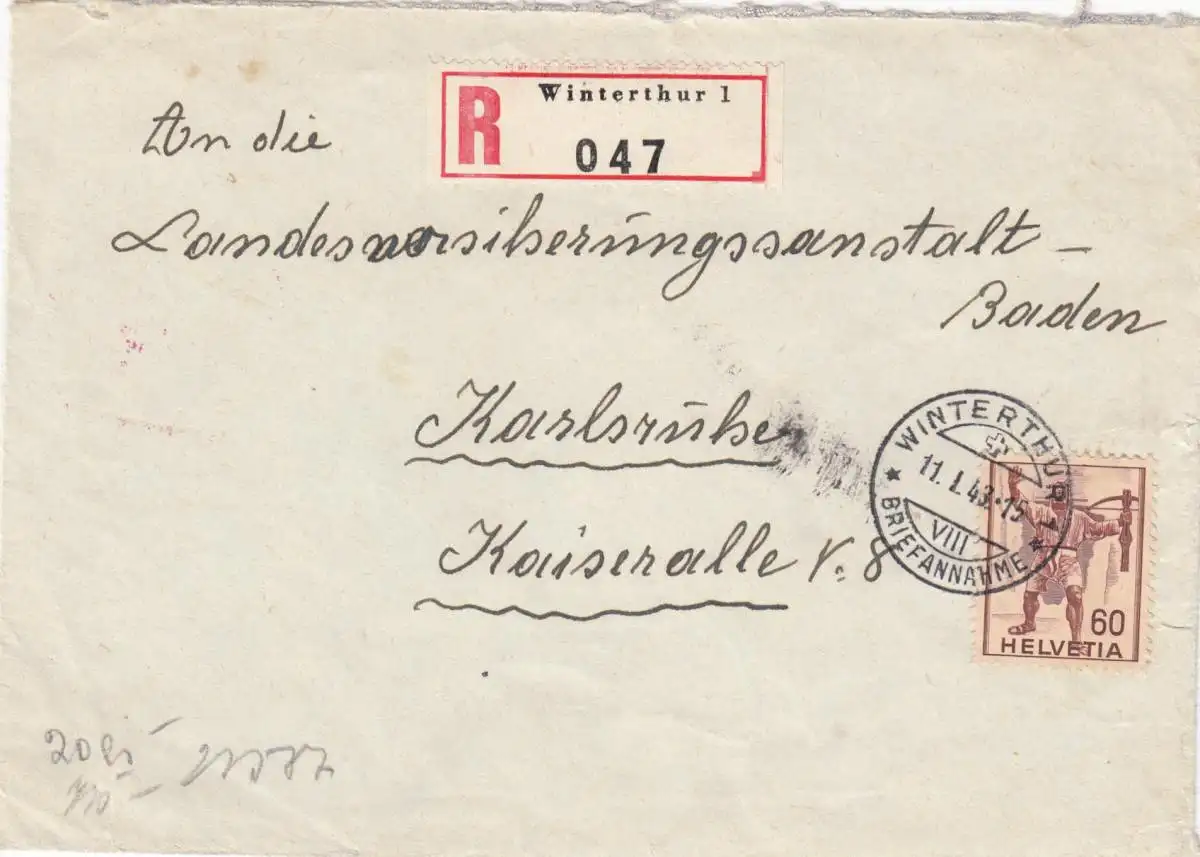 R Winterthur 1
047
An die
Landesversiherungssanstalt -
Baden
Karlsruhe
Kaiseralle N. 8
WINTERTHUR 1
11. I. 43 - 15
VIII
★ BRIEFANNAHME ★
60
HELVETIA